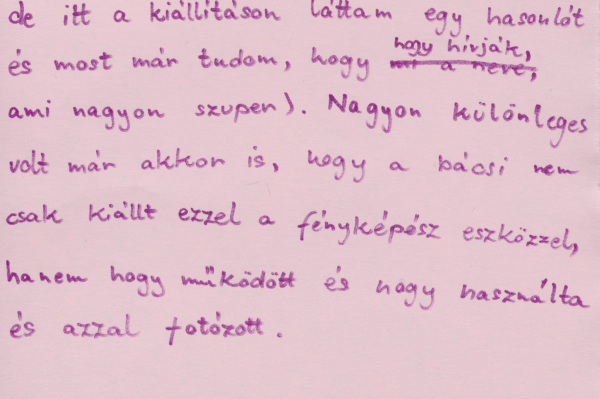 de itt a kiállításon láttam egy hasonlót
és most már tudom, hogy hogy hívják,
mi a neve,
ami nagyon szuper). Nagyon különleges
volt már akkor is, hogy a bácsi nem
csak kiállt ezzel a fényképész eszközzel,
hanem hogy működött és hogy használta
és azzal fotózott.